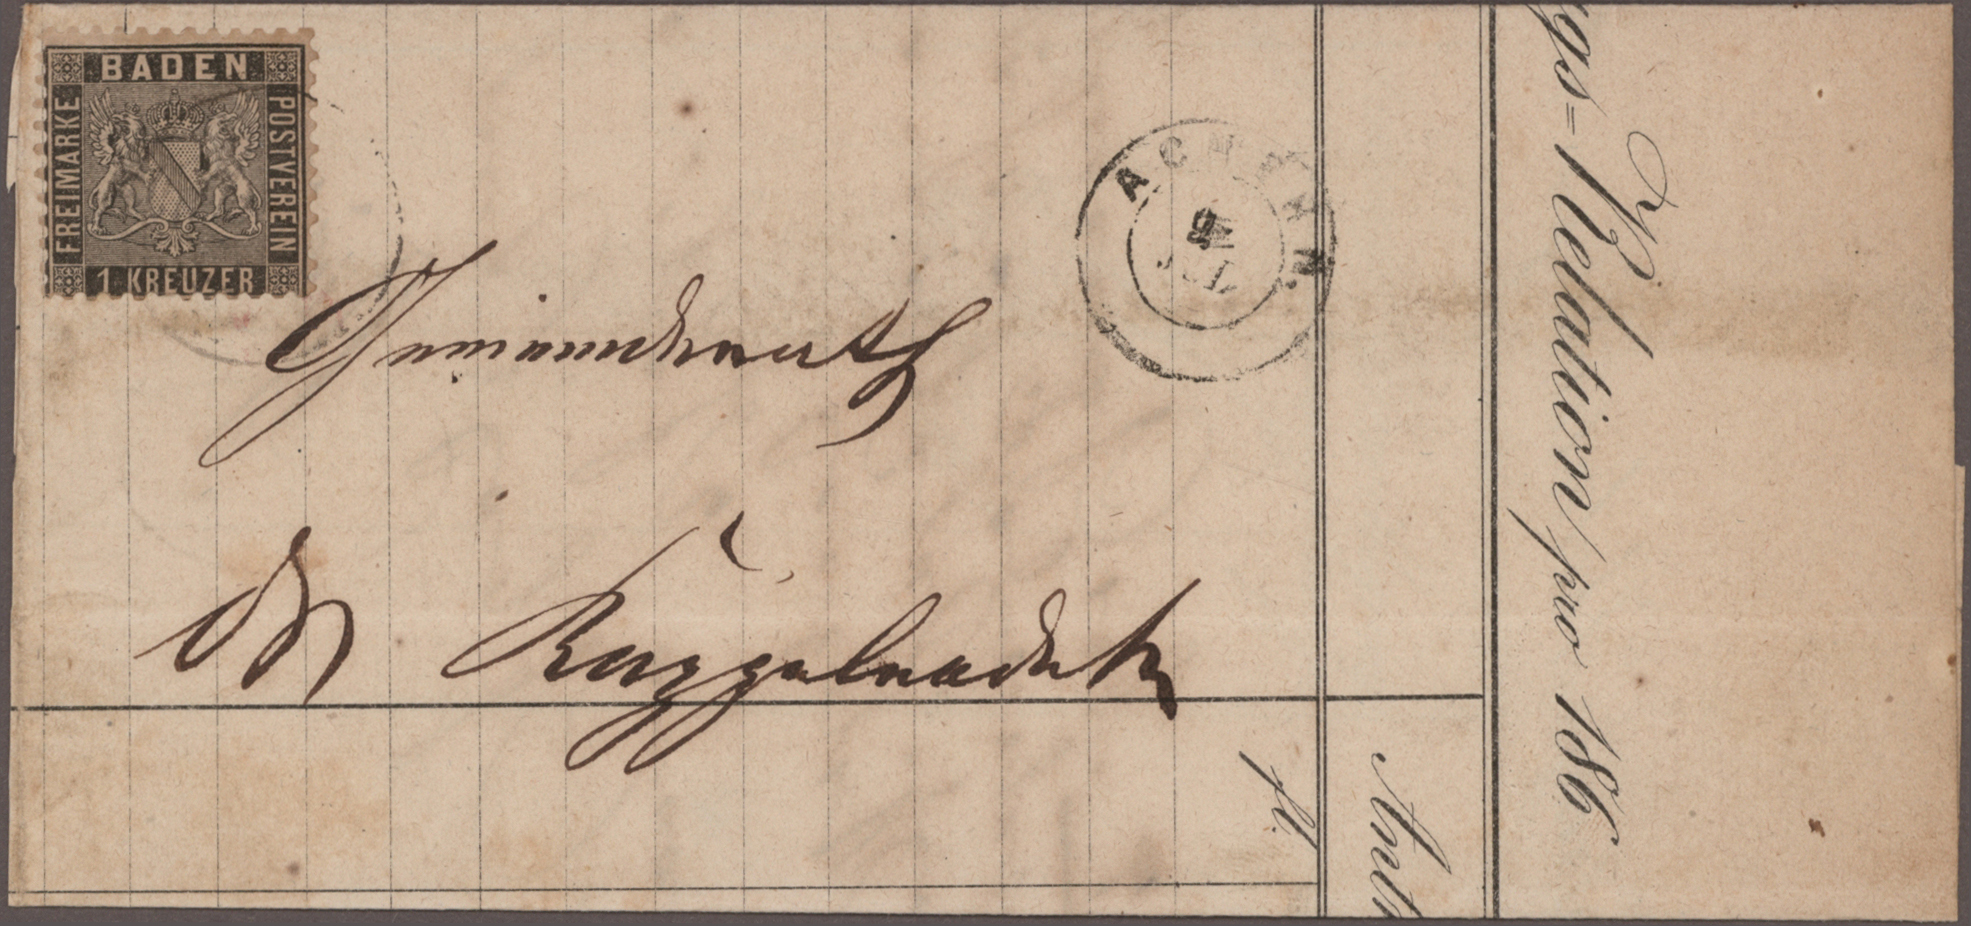 BADEN
FREIMARKE
POSTVEREIN
1 KREUZER
ACHERN.
9
JUL
Gemeinderath
Kappelrodeck
fl.
gs=Relation pro 186